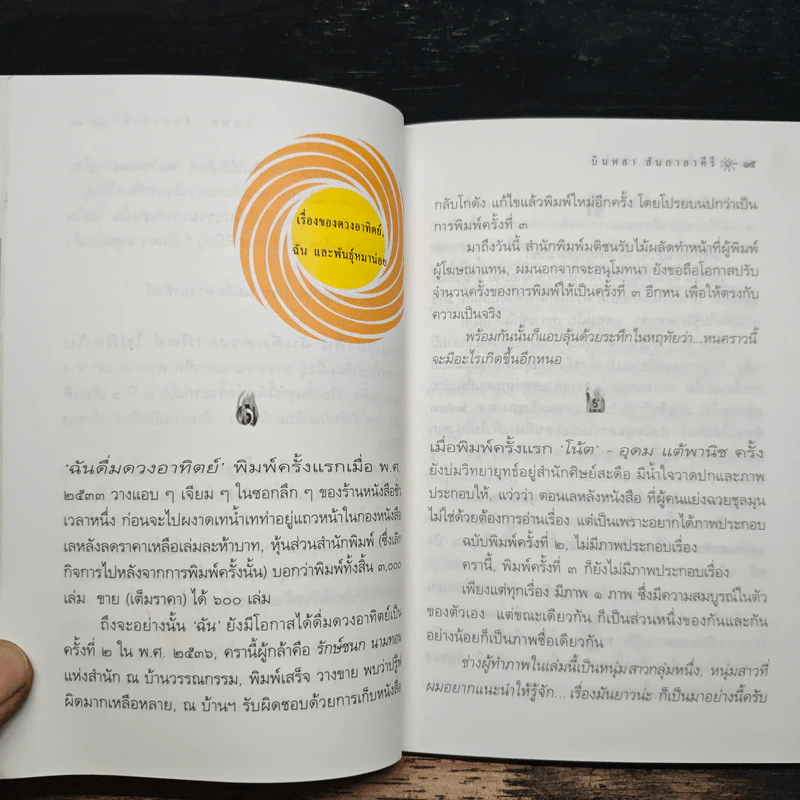 เรื่องของดวงอาทิตย์,
ฉัน และพันธุ์หมาน่อย
๑
'ฉันดื่มดวงอาทิตย์' พิมพ์ครั้งแรกเมื่อ พ.ศ.
๒๕๓๓ วางแอบ ๆ เจียม ๆ ในซอกลึก ๆ ของร้านหนังสือชั่ว
เวลาหนึ่ง ก่อนจะไปผงาดเทน้ำเทท่าอยู่แถวหน้าในกองหนังสือ
เลหลังลดราคาเหลือเล่มละห้าบาท, หุ้นส่วนสำนักพิมพ์ (ซึ่งเลิก
กิจการไปหลังจากการพิมพ์ครั้งนั้น) บอกว่าพิมพ์ทั้งสิ้น ๓,๐๐๐
เล่ม ขาย (เต็มราคา) ได้ ๖๐๐ เล่ม
ถึงจะอย่างนั้น 'ฉัน' ยังมีโอกาสได้ดื่มดวงอาทิตย์เป็น
ครั้งที่ ๒ ใน พ.ศ. ๒๕๓๖, ครานี้ผู้กล้าคือ รักษ์ชนก นามทอน
แห่งสำนัก ณ บ้านวรรณกรรม, พิมพ์เสร็จ วางขาย พบว่าปรู๊ฟ
ผิดมากเหลือหลาย, ณ บ้านฯ รับผิดชอบด้วยการเก็บหนังสือ
บินหลา สันกาลาคีรี ๑๕
กลับโกดัง แก้ไขแล้วพิมพ์ใหม่อีกครั้ง โดยโปรยบนปกว่าเป็น
การพิมพ์ครั้งที่ ๓
มาถึงวันนี้ สำนักพิมพ์มติชนรับไม้ผลัดทำหน้าที่ผู้พิมพ์
ผู้โฆษณาแทน, ผมนอกจากจะอนุโมทนา ยังขอถือโอกาสปรับ
จำนวนครั้งของการพิมพ์ให้เป็นครั้งที่ ๓ อีกหน เพื่อให้ตรงกับ
ความเป็นจริง
พร้อมกันนั้นก็แอบลุ้นด้วยระทึกในหฤทัยว่า...หนคราวนี้
จะมีอะไรเกิดขึ้นอีกหนอ
๒
เมื่อพิมพ์ครั้งแรก 'โน้ต' - อุดม แต้พานิช ครั้ง
ยังบ่มวิทยายุทธ์อยู่สำนักศิษย์สะดือ มีน้ำใจวาดปกและภาพ
ประกอบให้, แว่วว่า ตอนเลหลังหนังสือ ที่ผู้คนแย่งฉวยชุลมุน
ไม่ใช่ด้วยต้องการอ่านเรื่อง แต่เป็นเพราะอยากได้ภาพประกอบ
ฉบับพิมพ์ครั้งที่ ๒, ไม่มีภาพประกอบเรื่อง
ครานี้, พิมพ์ครั้งที่ ๓ ก็ยังไม่มีภาพประกอบเรื่อง
เพียงแต่ทุกเรื่อง มีภาพ ๑ ภาพ ซึ่งมีความสมบูรณ์ในตัว
ของตัวเอง แต่ขณะเดียวกัน ก็เป็นส่วนหนึ่งของกันและกัน
อย่างน้อยก็เป็นภาพชื่อเดียวกัน
ช่างผู้ทำภาพในเล่มนี้เป็นหนุ่มสาวกลุ่มหนึ่ง, หนุ่มสาวที่
ผมอยากแนะนำให้รู้จัก... เรื่องมันยาวน่ะ ก็เป็นมาอย่างนี้ครับ